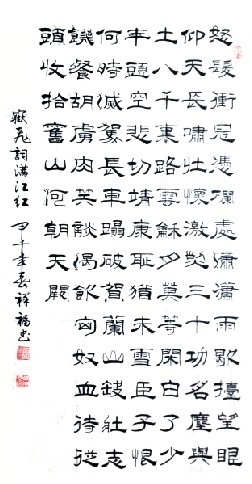 怒髮衝冠憑欄處瀟瀟雨歇擡望眼
仰天長嘯壯懷激烈三十功名塵與
土八千里路雲龢月莫等閒白了少
年頭空悲切靖康恥猶未雪臣子恨
何時滅駕長車蹋破賀蘭山缺壯志
饑餐胡虜肉笑談渴飲匈奴血待從
頭收拾舊山河朝天闕
嶽飛詞滿江紅 甲午年春祥福書